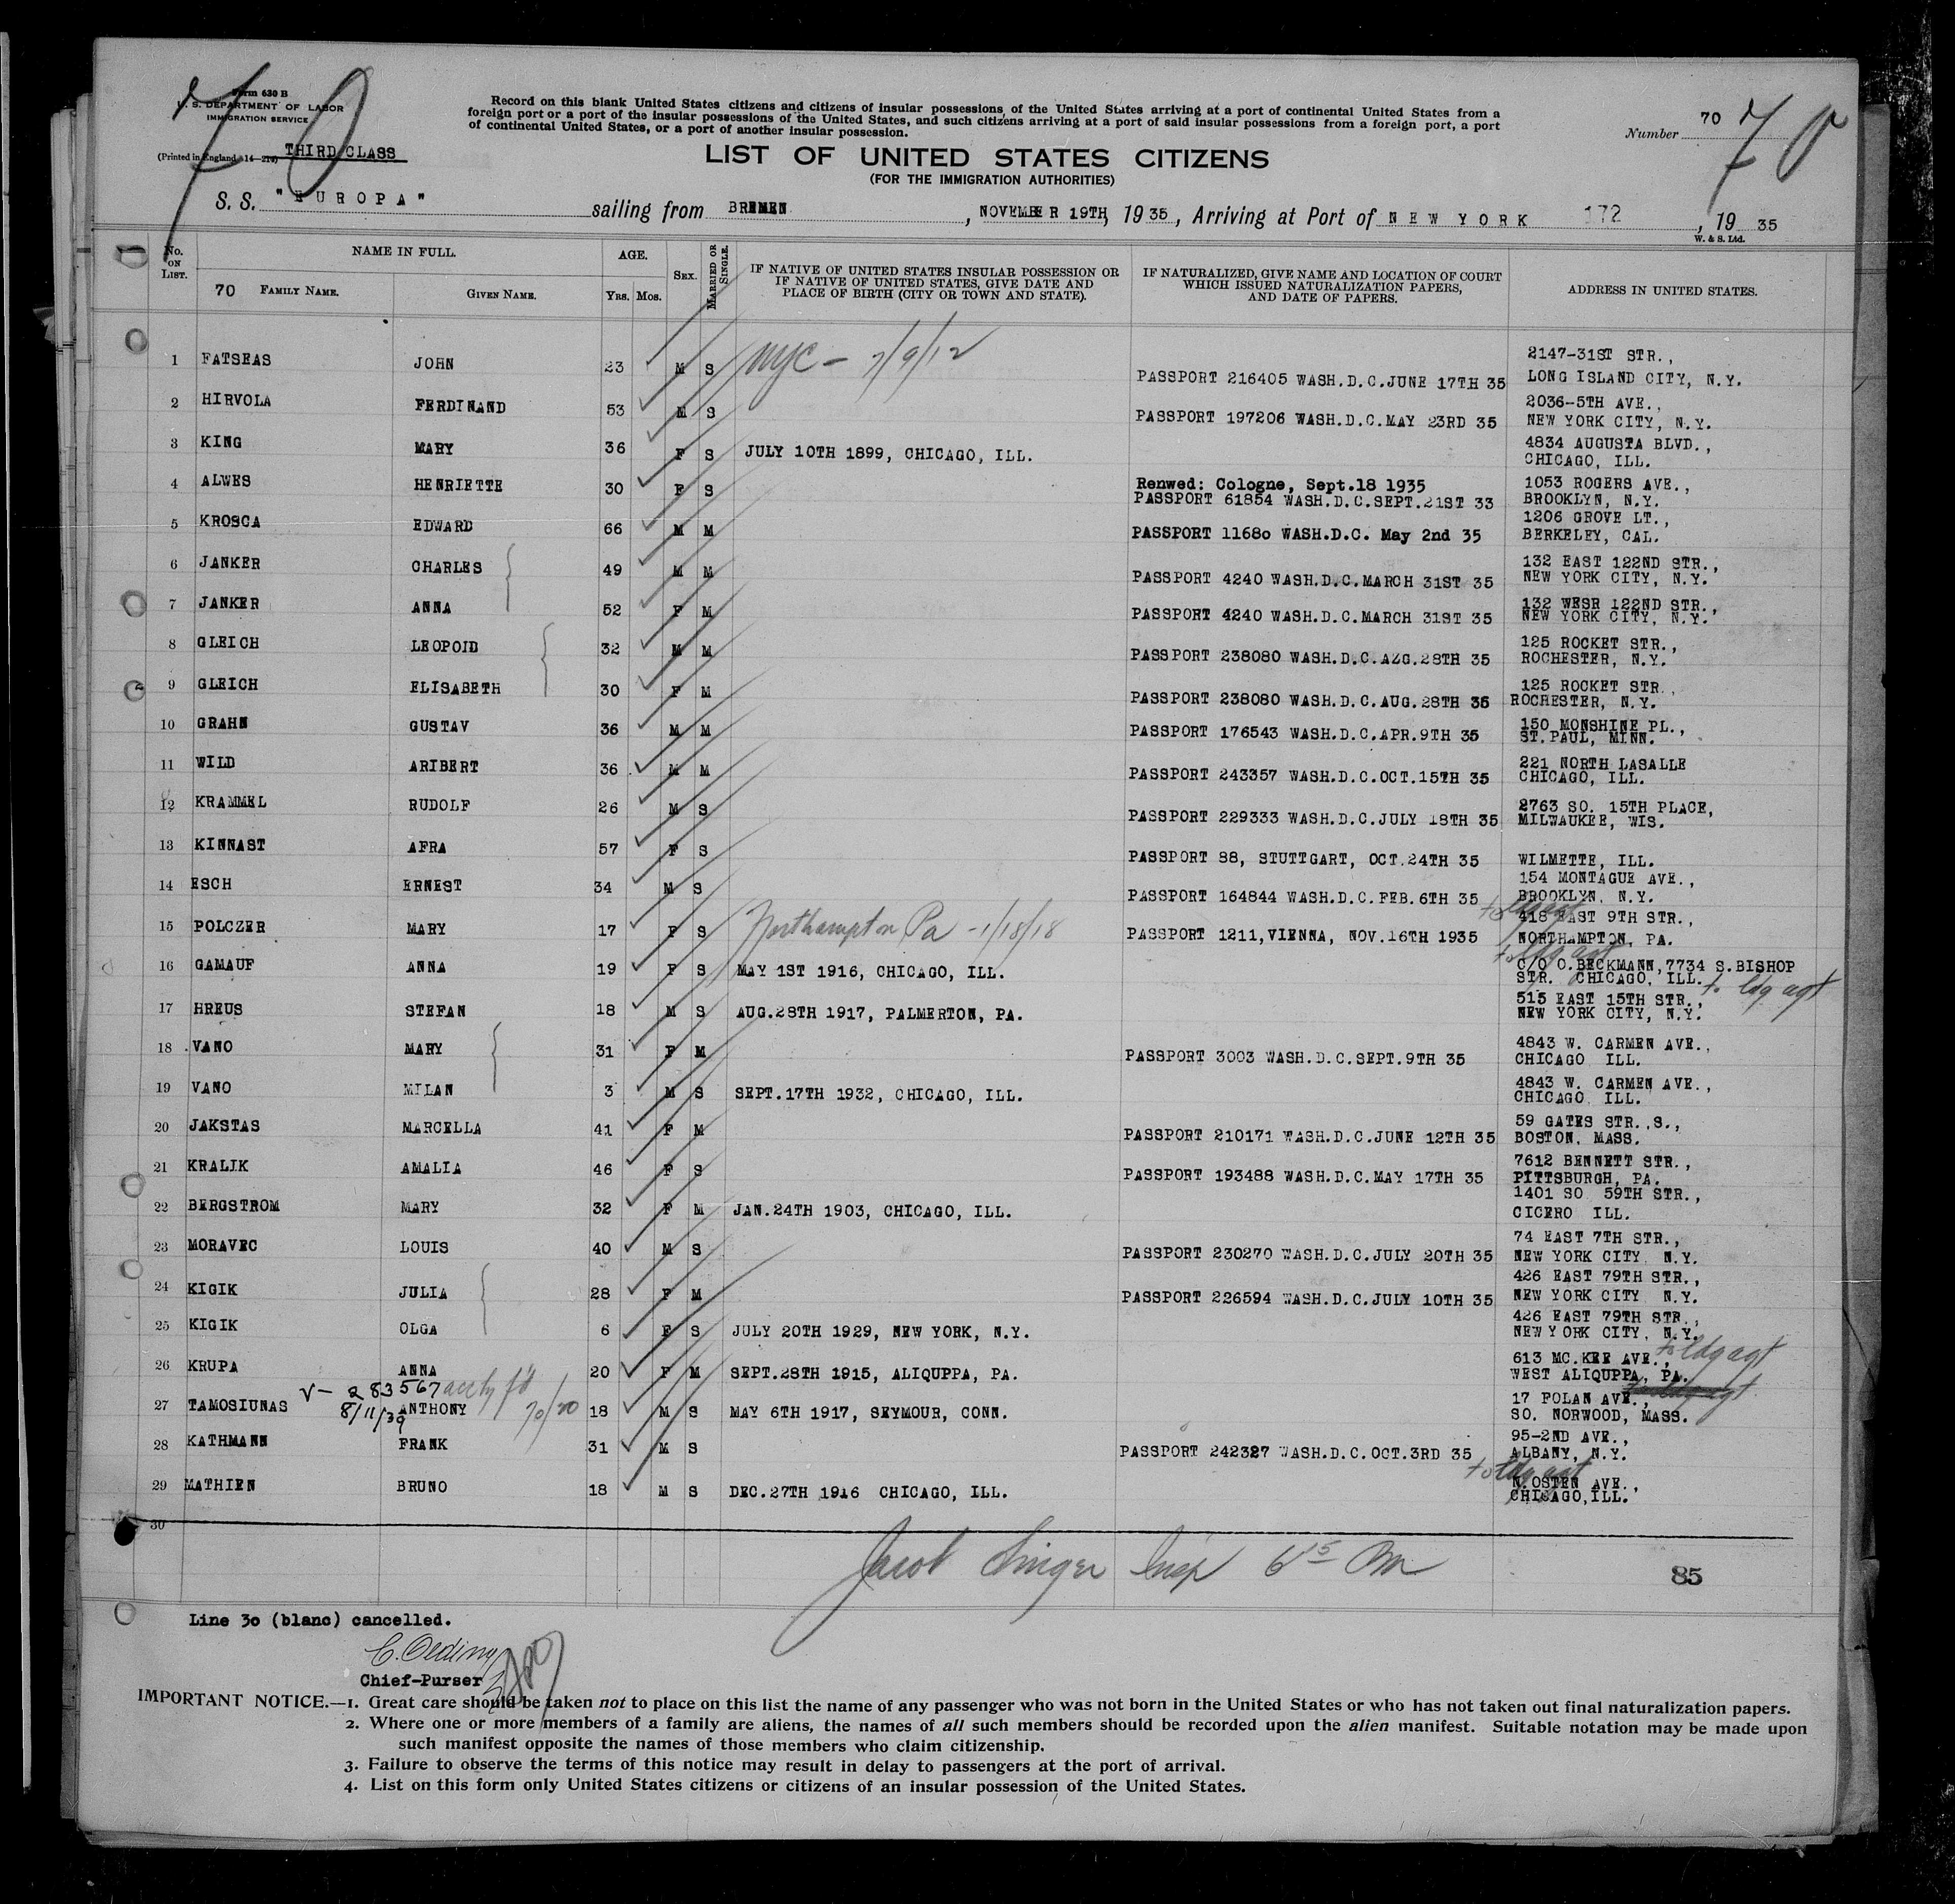 70
Form 630 B
U. S. DEPARTMENT OF LABOR
IMMIGRATION SERVICE
(Printed in England)
THIRD CLASS
Record on this blank United States citizens and citizens of insular possessions of the United States arriving at a port of continental United States from a
foreign port or a port of the insular possessions of the United States, and such citizens arriving at a port of said insular possessions from a foreign port, a port
of continental United States, or a port of another insular possession.
Number 70 70
LIST OF UNITED STATES CITIZENS
(FOR THE IMMIGRATION AUTHORITIES)
S. S. "EUROPA" sailing from BREMEN, NOVEMBER 19TH, 1935, Arriving at Port of NEW YORK 172, 1935
W. & S. Ltd.
No. ON LIST. NAME IN FULL. AGE. SEX. MARRIED OR SINGLE. IF NATIVE OF UNITED STATES INSULAR POSSESSION OR IF NATIVE OF UNITED STATES, GIVE DATE AND PLACE OF BIRTH (CITY OR TOWN AND STATE). IF NATURALIZED, GIVE NAME AND LOCATION OF COURT WHICH ISSUED NATURALIZATION PAPERS, AND DATE OF PAPERS. ADDRESS IN UNITED STATES.
70 FAMILY NAME. GIVEN NAME. YRS. MOS.
1 FATSEAS JOHN 23 M S NYC - 7/9/12 PASSPORT 216405 WASH.D.C.JUNE 17TH 35 2147-31ST STR., LONG ISLAND CITY, N.Y.
2 HIRVOLA FERDINAND 53 M S PASSPORT 197206 WASH.D.C.MAY 23RD 35 2036-5TH AVE., NEW YORK CITY, N.Y.
3 KING MARY 36 F S JULY 10TH 1899, CHICAGO, ILL. 4834 AUGUSTA BLVD., CHICAGO, ILL.
4 ALWES HENRIETTE 30 F S Renwed: Cologne, Sept.18 1935 PASSPORT 61854 WASH.D.C.SEPT.21ST 33 1053 ROGERS AVE., BROOKLYN, N.Y.
5 KROSCA EDWARD 66 M M PASSPORT 1168o WASH.D.C. May 2nd 35 1206 GROVE LT., BERKELEY, CAL.
6 JANKER CHARLES 49 M M PASSPORT 4240 WASH.D.C.MARCH 31ST 35 132 EAST 122ND STR., NEW YORK CITY, N.Y.
7 JANKER ANNA 52 F M PASSPORT 4240 WASH.D.C.MARCH 31ST 35 132 WESR 122ND STR., NEW YORK CITY, N.Y.
8 GLEICH LEOPOLD 32 M M PASSPORT 238080 WASH.D.C.AZG.28TH 35 125 ROCKET STR., ROCHESTER, N.Y.
9 GLEICH ELISABETH 30 F M PASSPORT 238080 WASH.D.C.AUG.28TH 35 125 ROCKET STR., ROCHESTER, N.Y.
10 GRAHN GUSTAV 36 M M PASSPORT 176543 WASH.D.C.APR.9TH 35 150 MONSHINE PL., ST.PAUL, MINN.
11 WILD ARIBERT 36 M M PASSPORT 243357 WASH.D.C.OCT.15TH 35 221 NORTH LASALLE CHICAGO, ILL.
12 KRAMMEL RUDOLF 26 M S PASSPORT 229333 WASH.D.C.JULY 18TH 35 2763 SO. 15TH PLACE, MILWAUKEE, WIS.
13 KINNAST AFRA 57 F S PASSPORT 88, STUTTGART, OCT.24TH 35 WILMETTE, ILL.
14 ESCH ERNEST 34 M S PASSPORT 164844 WASH.D.C.FEB.6TH 35 154 MONTAGUE AVE., BROOKLYN, N.Y.
15 POLCZER MARY 17 F S Northampton Pa - 1/18/18 PASSPORT 1211,VIENNA, NOV.16TH 1935 to ldg agt 418 EAST 9TH STR., NORTHAMPTON, PA.
16 GAMAUF ANNA 19 F S MAY 1ST 1916, CHICAGO, ILL. to ldg agt C/O O.BECKMANN,7734 S.BISHOP STR. CHICAGO, ILL.
17 HREUS STEFAN 18 M S AUG.28TH 1917, PALMERTON, PA. 515 EAST 15TH STR., NEW YORK CITY, N.Y. to ldg agt
18 VANO MARY 31 F M PASSPORT 3003 WASH.D.C.SEPT.9TH 35 4843 W. CARMEN AVE., CHICAGO ILL.
19 VANO MILAN 3 M S SEPT.17TH 1932, CHICAGO, ILL. 4843 W. CARMEN AVE., CHICAGO, ILL.
20 JAKSTAS MARCELLA 41 F M PASSPORT 210171 WASH.D.C.JUNE 12TH 35 59 GATES STR.,S., BOSTON, MASS.
21 KRALIK AMALIA 46 F S PASSPORT 193488 WASH.D.C.MAY 17TH 35 7612 BENNETT STR., PITTSBURGH, PA.
22 BERGSTROM MARY 32 F M JAN.24TH 1903, CHICAGO, ILL. 1401 SO 59TH STR., CICERO ILL.
23 MORAVEC LOUIS 40 M S PASSPORT 230270 WASH.D.C.JULY 20TH 35 74 EAST 7TH STR., NEW YORK CITY N.Y.
24 KIGIK JULIA 28 F M PASSPORT 226594 WASH.D.C.JULY 10TH 35 426 EAST 79TH STR., NEW YORK CITY N.Y.
25 KIGIK OLGA 6 F S JULY 20TH 1929, NEW YORK, N.Y. 426 EAST 79TH STR., NEW YORK CITY, N.Y.
26 KRUPA ANNA 20 F M SEPT.28TH 1915, ALIQUPPA, PA. 613 MC.KEE AVE., WEST ALIQUPPA, PA. to ldg agt
V- 283567
8/11/39 70/20
27 TAMOSIUNAS ANTHONY 18 M S MAY 6TH 1917, SEYMOUR, CONN. 17 FOLAN AVE., SO. NORWOOD, MASS.
28 KATHMANN FRANK 31 M S PASSPORT 242327 WASH.D.C.OCT.3RD 35 95-2ND AVE., ALBANY, N.Y.
29 MATHIEN BRUNO 18 M S DEC.27TH 1916 CHICAGO, ILL. to ldg agt N.OSTEN AVE., CHICAGO,ILL.
30
Jacob Singer Insp
85
Line 3o (blanc) cancelled.
C. Oeding
Chief-Purser
IMPORTANT NOTICE.—1. Great care should be taken not to place on this list the name of any passenger who was not born in the United States or who has not taken out final naturalization papers.
2. Where one or more members of a family are aliens, the names of all such members should be recorded upon the alien manifest. Suitable notation may be made upon
such manifest opposite the names of those members who claim citizenship.
3. Failure to observe the terms of this notice may result in delay to passengers at the port of arrival.
4. List on this form only United States citizens or citizens of an insular possession of the United States.